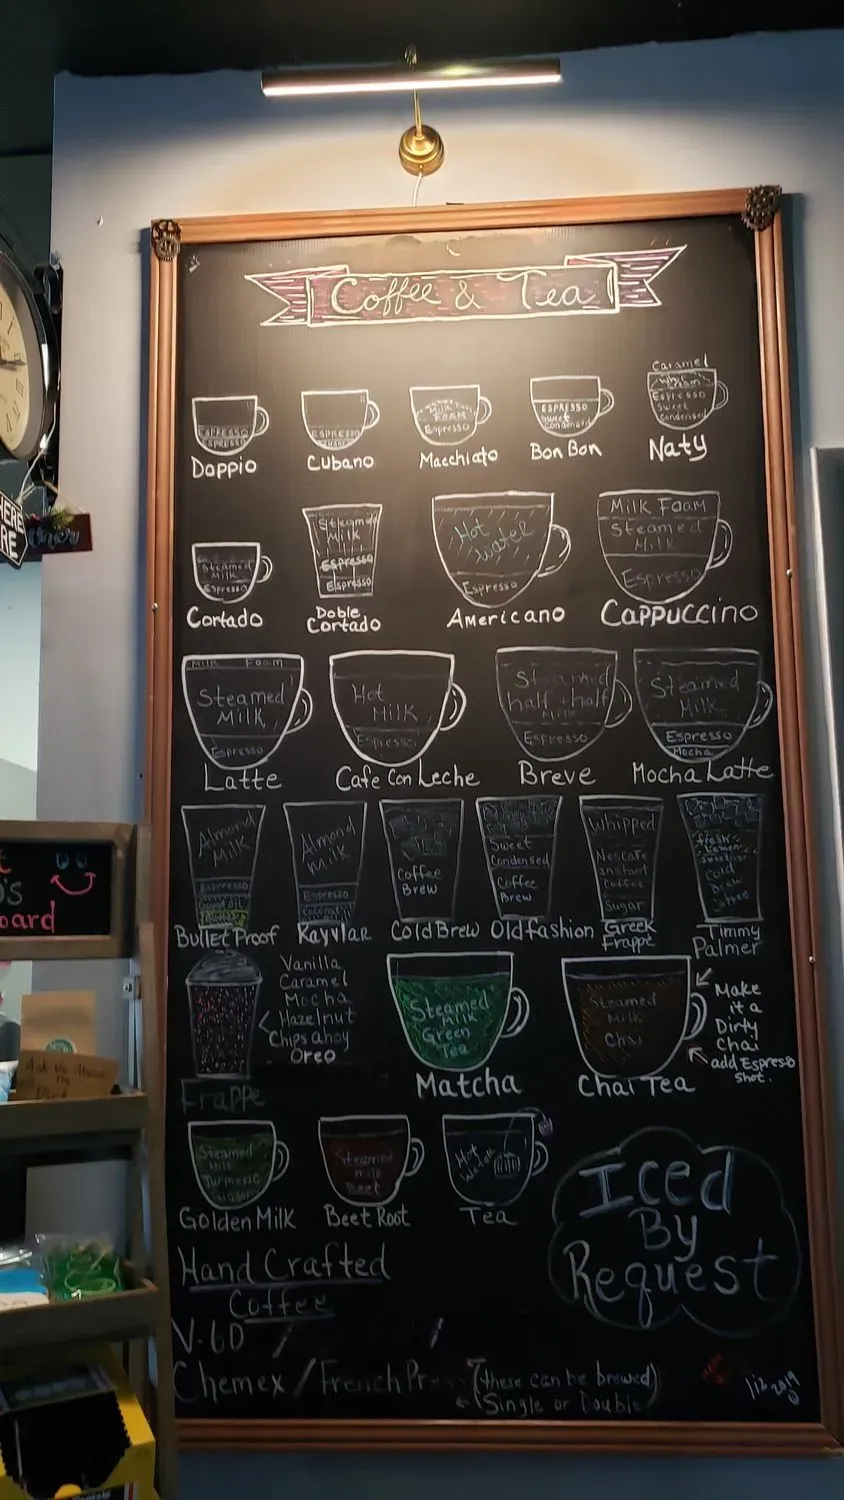 Coffee & Tea
ESPRESSO
ESPRESSO
Doppio
ESPRESSO
Cubano
Milk
FOAM
Espresso
Macchiato
ESPRESSO
Sweet
Condensed
Bon Bon
Caramel
Whip
Cream
Espresso
Sweet
Condensed
Naty
Steamed
Milk
Espresso
Cortado
Steamed
Milk
Espresso
Espresso
Doble
Cortado
Hot
Water
Espresso
Americano
Milk Foam
Steamed
Milk
Espresso
Cappuccino
Milk Foam
Steamed
Milk
Espresso
Latte
Hot
Milk
Espresso
Cafe Con Leche
Steamed
half + half
Milk
Espresso
Breve
Steamed
Milk
Espresso
Mocha
Mocha Latte
Almond
Milk
Espresso
Bullet Proof
Almond
Milk
Espresso
Kayvlar
Coffee
Brew
Cold Brew
Sweet
Condensed
Coffee
Brew
Old fashion
Whipped
Nescafe
Instant
Coffee
Sugar
Greek
Frappe
fresh
Lemon
Cold
Brew
Coffee
Timmy
Palmer
Vanilla
Caramel
Mocha
Hazelnut
Chips ahoy
Oreo
Frappe
Steamed
Milk
Green
Tea
Matcha
Steamed
Milk
Chai
Chai Tea
Make
it a
Dirty
Chai
add Espresso
Shot.
Steamed
Milk
Turmeric
Golden Milk
Steamed
Milk
Beet
Beet Root
Hot
Water
Tea
Iced
By
Request
Hand Crafted
Coffee
V-60 / /
Chemex / French Pr
(these can be brewed)
Single or Double
liz 2019
HERE
RE
oard
Ask Us About
The